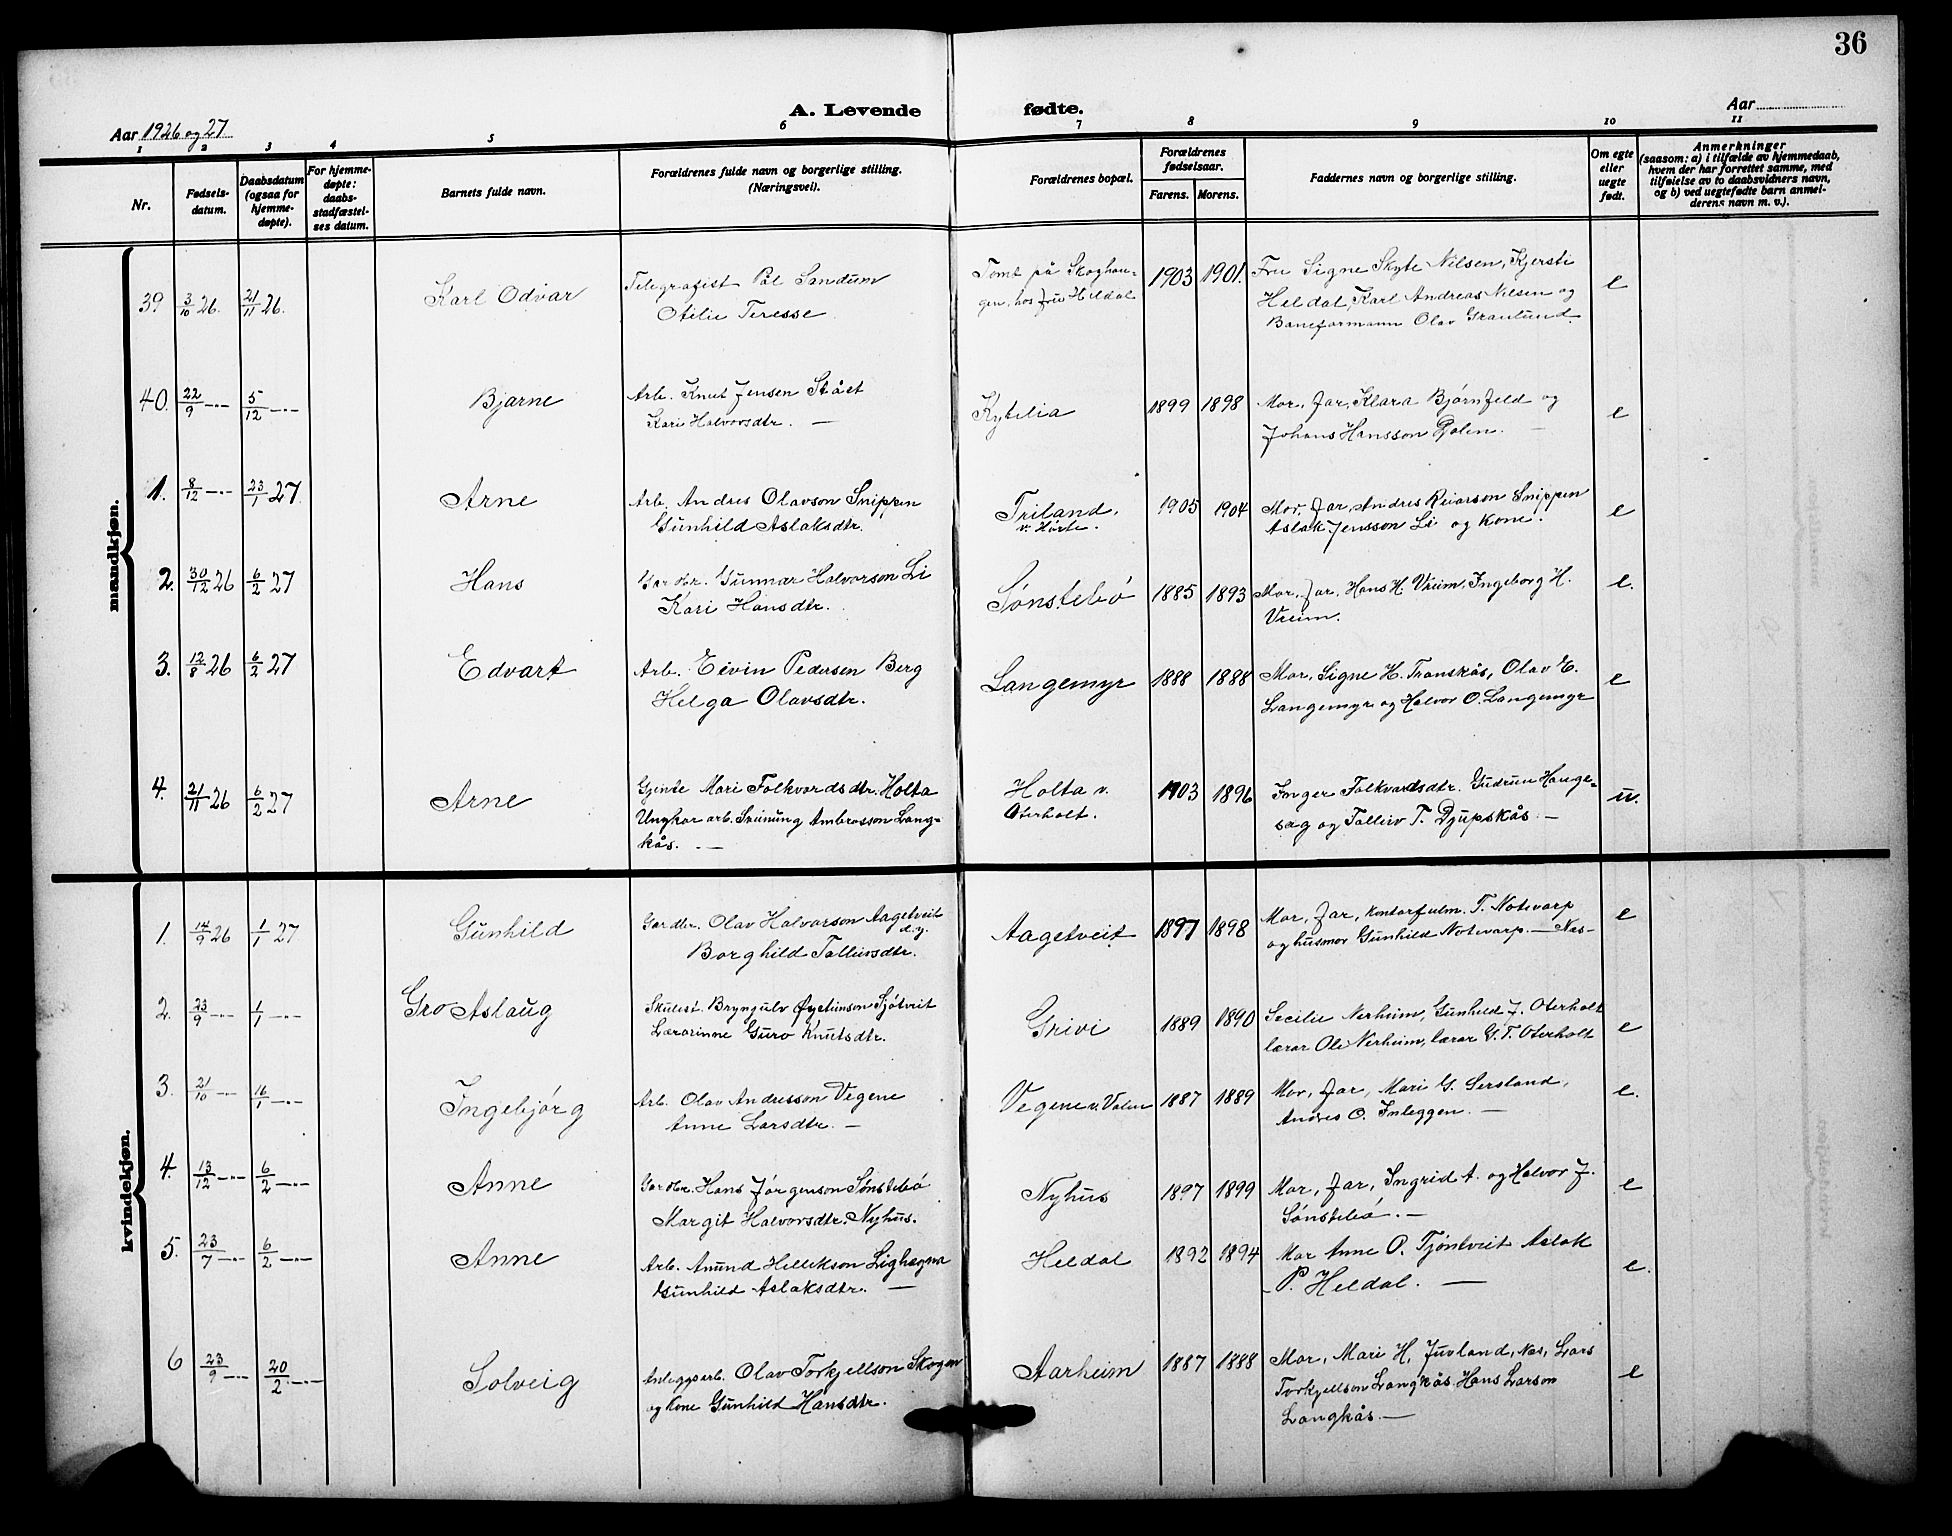 36
A. Levende fødte.
Aar 1926 og 27
Aar
1 2 3 4 5 6 7 8 9 10 11
Nr.
Fødsels-
datum.
Daabsdatum
(ogsaa for
hjemme-
døpte).
For hjemme-
døpte:
daabs-
stadfæstel-
ses datum.
Barnets fulde navn.
Forældrenes fulde navn og borgerlige stilling.
(Næringsvei).
Forældrenes bopæl.
Forældrenes
fødselsaar.
Farens. Morens.
Faddernes navn og borgerlige stilling.
Om egte
eller
uegte
født.
Anmerkninger
(saasom: a) i tilfælde av hjemmedaab,
hvem der har forrettet samme, med
tilføielse av to daabsvidners navn,
og b) ved uegtefødte barn anmel-
derens navn m. v.).
mandkjøn.
39 3/10 26. 21/11 26. Karl Odvar
Telegrafist Pål Sandum
Otilie Teresse
Tomt på Skoghau-
gen, hos fru Heldal
1903 1901.
Fru Signe Skyte Nilsen, Kjersti
Heldal, Karl Andreas Nilsen og
Baneformann Olav Granlund.
e
40. 22/9 -"- 5/12 -"- Bjarne
Arb. Knut Jensen
Kari Halvorsdtr. —
Kytilia
1899 1898
Mor, Far, Klara Bjørnfeld og
Johans Hansson —
e
1. 8/12 -"- 23/1 27. Arne
Arb. Andres Olavson Snippen
Gunhild Aslaksdtr.
Triland,
v. Hørte.
1905 1904
Mor, Far, Andres Reiarson Snippen
Aslak Jensson Li og Kone.
e
2. 30/12 26 6/2 27 Hans
Gardbr. Gunnar Halvorson Li
Kari Hansdtr.
Sønstebö
1885 1893
Mor, Far, Hans H. Vreim, Ingeborg H.
Vreim.
e.
3. 12/8 26 6/2 27 Edvart
Arb. Eivin Pedersen Berg
Helga Olavsdtr.
Langemyr
1888 1888
Mor, Signe H. Transkås, Olav E.
Langemyr og Halvor O. Langemyr
e
4. 21/11 26 6/2 27 Arne
Gjente Mari Folkvordsdtr. Holta
Ungkar arb. Sveinung Ambrosson Lang-
kås. —
Holta v.
Oterholt.
1903 1896
Inger Folkvardsdtr. Gudrun Hauge-
sag og Tolleiv T. Djupskås. —
u.
kvindekjøn.
1. 14/9 26 1/1 27 Gunhild
Gardbr. Olav Halvorson Aagetveit
d.y.
Borghild Tolleivsdtr.
Aagetveit
1897 1898
Mor, Far, Kontorfulm. T. Notevarp
og husmor Gunhild Notevarp — Nes-
e
2. 23/9 -"- 1/1 -"- Gro Aslaug
Skulest. Bryngulv Øysteinson Sjøtveit
Lærarinne Guro Knutsdtr.
Grivi
1889 1890
Secilie Nerheim, Gunhild J. Oterholt
lærar Ole Nerheim, lærar G. T. Oterholt
e
3. 21/10 -"- 16/1 -"- Ingebjørg
Arb. Olav Andresson Vegene
Anne Larsdtr. —
Vegene v. Valen
1887 1889
Mor, Far, Mari G. Sersland,
Andres O. Inleggen. —
e.
4. 13/12 -"- 6/2 -"- Anne
Gardbr. Hans Jørgenson Sønstebö
Margit Halvorsdtr. Nyhus.
Nyhus
1897 1899
Mor, Far, Ingrid A. og Halvor J.
Sønstebö. —
e
5. 23/7 -"- 6/2 -"- Anne
Arb. Anund Hellekson Lighagna
Gunhild Aslaksdtr. —
Heldal
1892 1894
Mor Anne O. Tjöntveit Aslak
P. Heldal. —
e.
6 23/9 -"- 20/2 -"- Solveig
Anleggsarb. Olav Torkjellson Skogen
og kone Gunhild Hansdtr.
Aarheim
1887 1888
Mor, Mari H. Juvland, Nes, Lars
Torkjellson Langkås, Hans Larson
Langkås. —
e